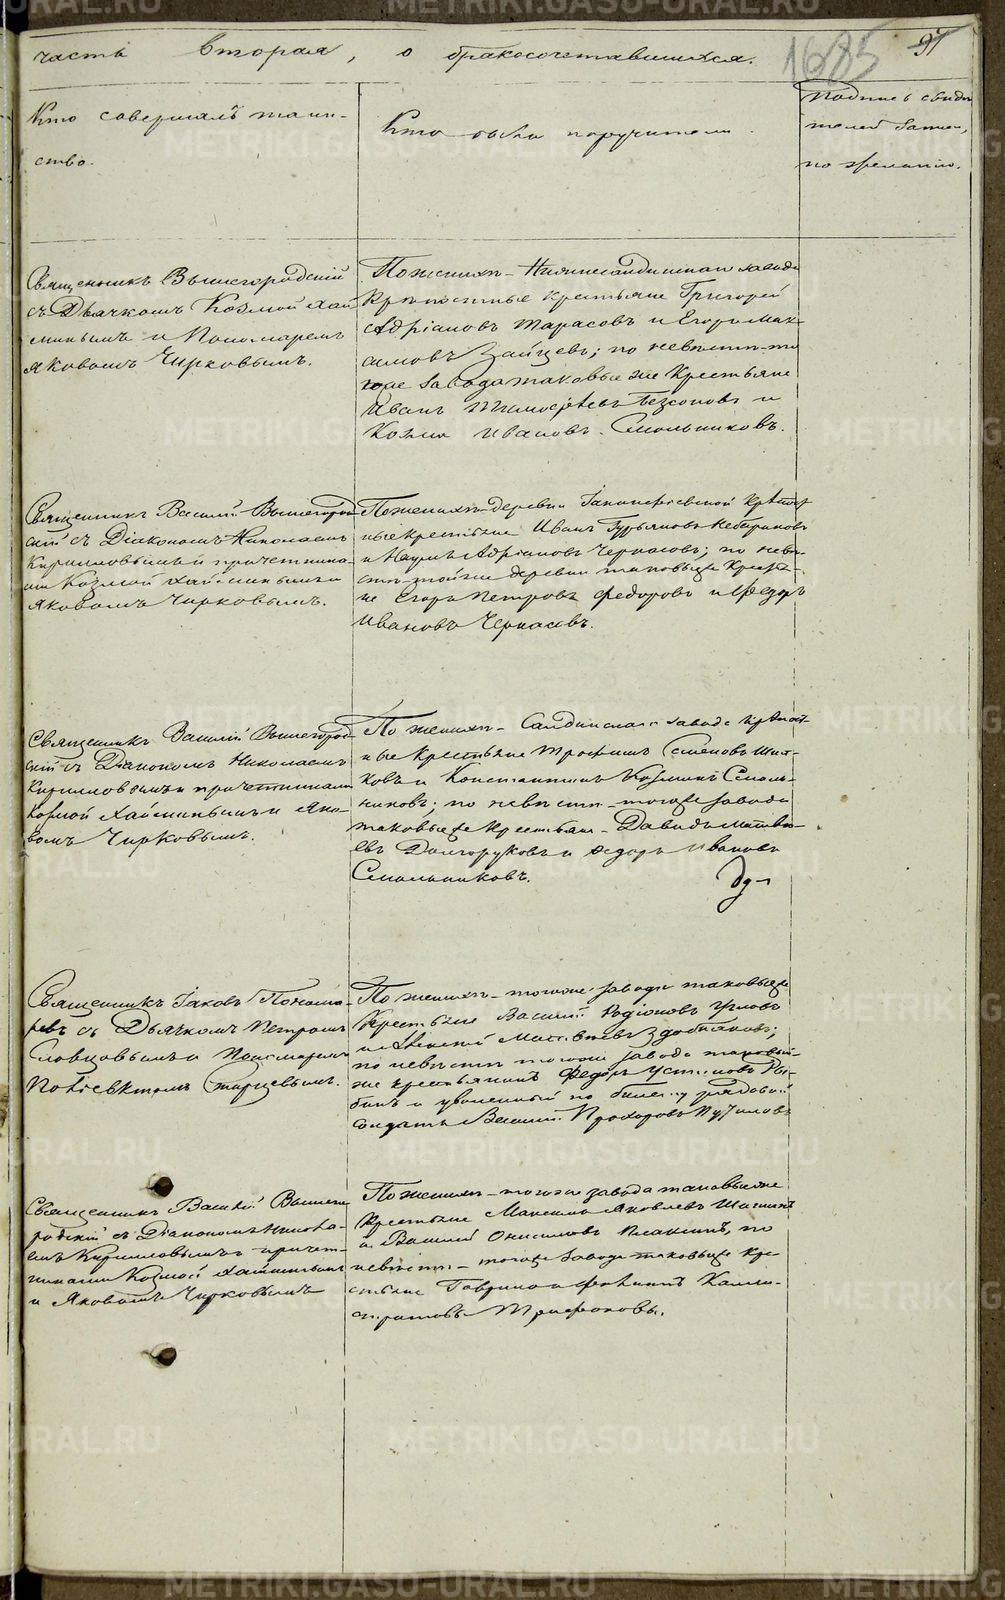 часть вторая, о бракосочетавшихся.
1685
97
Кто совершалъ таин-
ство.
Кто были поручители.
Подпись свиде
телей записи,
по желанію.
Священникъ Вышегородскій
съ Дьячкомъ Козмой Хай
минымъ и Пономаремъ
Яковомъ Чирковымъ.
По женихѣ - Нижнесалдинскаго завода
Крѣпостные крестьяне Григорей
Адріановъ Тарасовъ и Егоръ Мак-
симовъ Зайцевъ; по невѣстѣ - то
же завода таковые же Крестьяне
Иванъ Тимофѣевъ Безсоновъ и
Козма Ивановъ Смольниковъ.
Священникъ Василій Вышегород
скій съ Діакономъ Николаемъ
Кирилловымъ и причетника
ми Козмой Хайминымъ и
Яковомъ Чирковымъ.
По женихѣ - деревни Крѣпост
ные крестьяне Иванъ Гурьяновъ
и Наумъ Адріановъ Черкасовъ; по невѣ
стѣ - той же деревни таковые же Кресть-
не Егоръ Петровъ Федоровъ и Федоръ
Ивановъ Черкасовъ.
Священникъ Василій Вышегород
скій съ Діакономъ Николаемъ
Кирилловымъ и причетниками
Козмой Хайминымъ и Яко-
вомъ Чирковымъ.
По женихѣ - Салдинскаго завода крѣпост
ные Крестьяне Трофимъ Семеновъ
ковъ и Константинъ Козминъ Смоль-
никовъ; по невѣстѣ - того же завода
таковые же Крестьяне - Давидъ Матвѣ-
евъ Долгоруковъ и Федоръ Ивановъ
Смольниковъ.
Священникъ Іаковъ Понома-
ревъ съ Дьячкомъ Петромъ
Словцовымъ и Пономаремъ
Поліевктомъ Старцевымъ.
По женихѣ - того же завода таковые же
Крестьяне Василій Родіоновъ
и Алексѣй Матвѣевъ
по невѣстѣ того же завода таковый-
же крестьянинъ Федоръ Устиновъ Ря-
бинъ и уволенный по билету рядовой
Солдатъ Василій Прохоровъ
Священникъ Василій Вышего
родскій съ Діакономъ Никола-
емъ Кирилловымъ и причет-
никами Козмой Хайминымъ
и Яковомъ Чирковымъ
По женихѣ - того же завода таковые же
Крестьяне Максимъ Яковлевъ
и Василій Онисимовъ по
невѣстѣ - того же завода таковые же Кре-
стьяне Гаврило и Калли-
стратовы Трифоновы.
METRIKI.GASO-URAL.RU